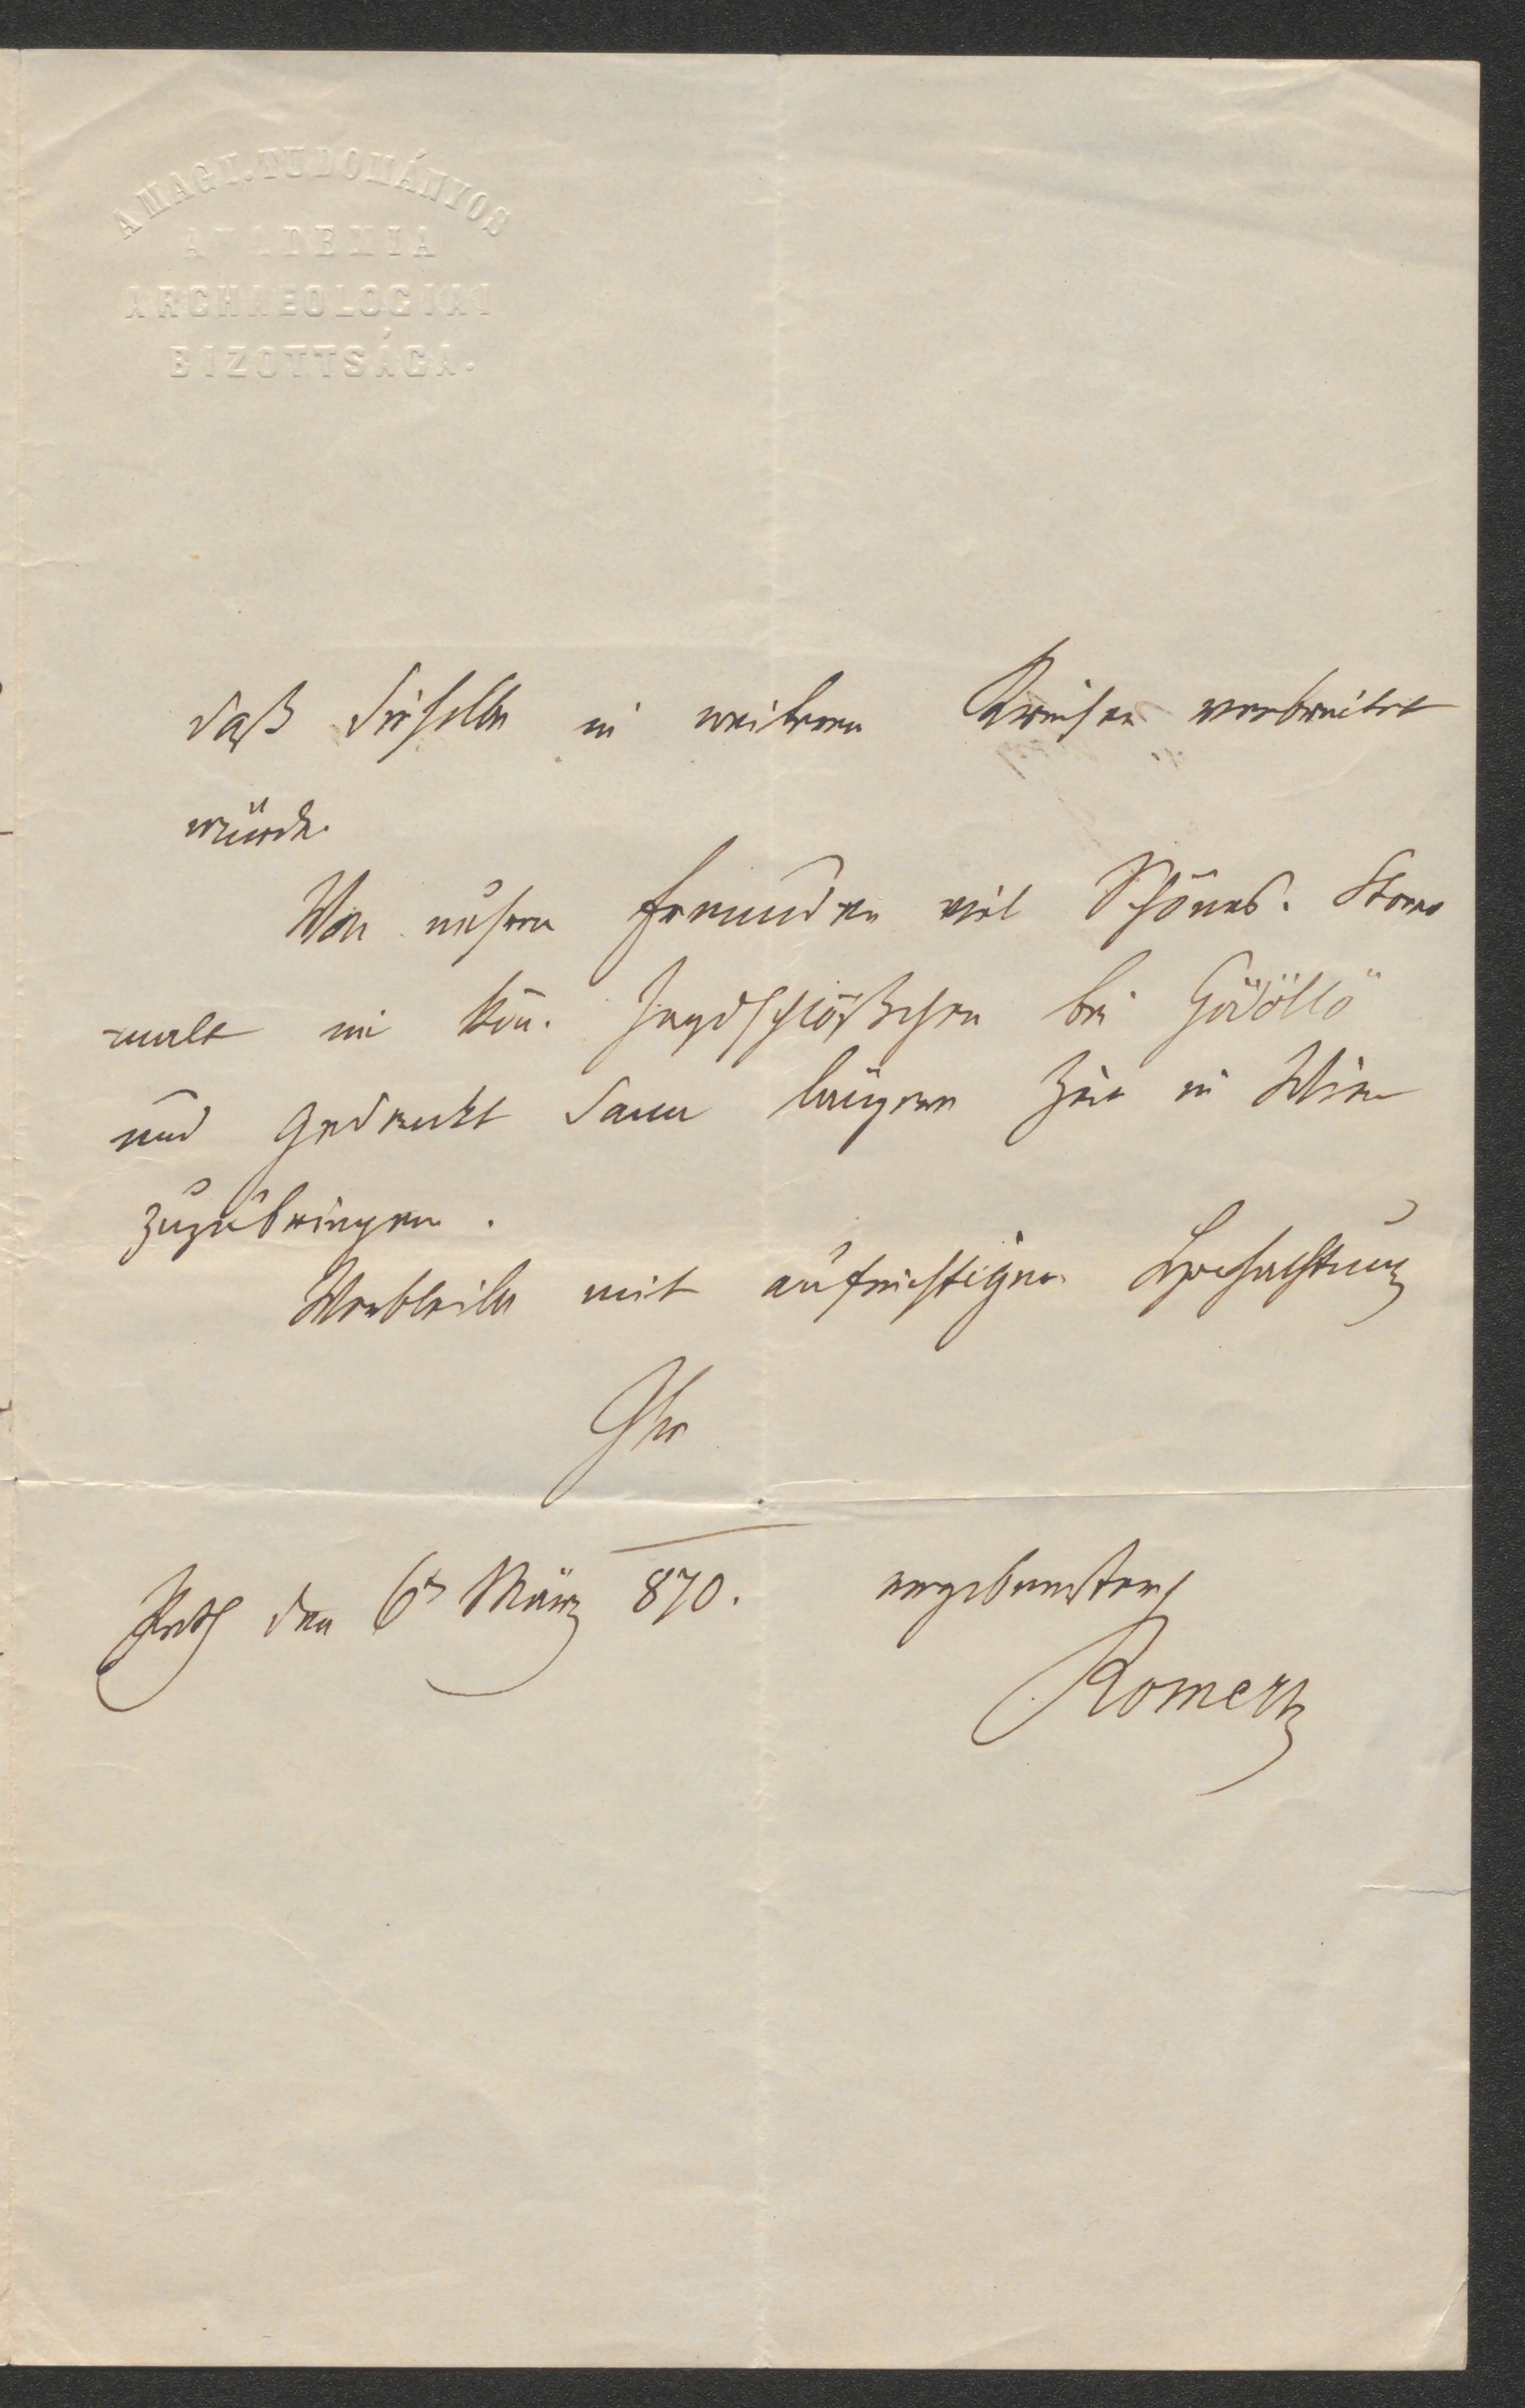 A MAGY. TUDOMÁNYOS
AKADEMIA
ARCHAEOLOGIAI
BIZOTTSÁGA.
daß dieselbe in weiteren Kreisen verbreitet
würde.
Von unsern Freunden viel Schönes. Storno
malt im kön. Jagdschlößchen bei Gödöllö
und gedenkt dann längere Zeit in Wien
zuzubringen.
Verbleibe mit aufrichtiger Hochachtung
Ihr
Pesth den 6t März 870.
ergebenster
Romer